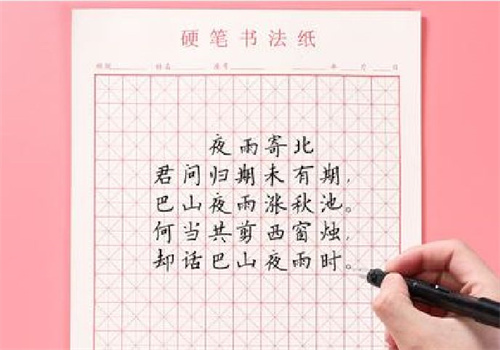 硬笔书法纸
班级 姓名 座号 年 月 日
夜雨寄北
君问归期未有期，
巴山夜雨涨秋池。
何当共剪西窗烛，
却话巴山夜雨时。